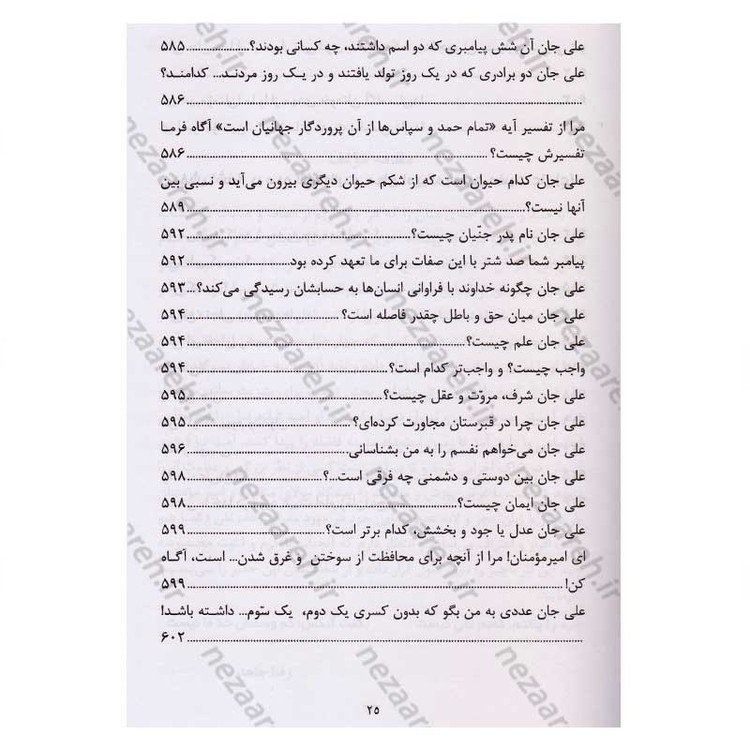 علی جان آن شش پیامبری که دو اسم داشتند، چه کسانی بودند؟....................۵۸۵
علی جان دو برادری که در یک روز تولد یافتند و در یک روز مردند... کدامند؟
....................۵۸۶
مرا از تفسیر آیه «تمام حمد و سپاس‌ها از آن پروردگار جهانیان است» آگاه فرما
تفسیرش چیست؟....................۵۸۶
علی جان کدام حیوان است که از شکم حیوان دیگری بیرون می‌آید و نسبی بین
آنها نیست؟....................۵۸۹
علی جان نام پدر جنّیان چیست؟....................۵۹۲
پیامبر شما صد شتر با این صفات برای ما تعهد کرده بود....................۵۹۲
علی جان چگونه خداوند با فراوانی انسان‌ها به حسابشان رسیدگی می‌کند؟....۵۹۳
علی جان میان حق و باطل چقدر فاصله است؟....................۵۹۴
علی جان علم چیست؟....................۵۹۴
واجب چیست؟ و واجب‌تر کدام است؟....................۵۹۴
علی جان شرف، مروّت و عقل چیست؟....................۵۹۵
علی جان چرا در قبرستان مجاورت کرده‌ای؟....................۵۹۵
علی جان می‌خواهم نفسم را به من بشناسانی....................۵۹۶
علی جان بین دوستی و دشمنی چه فرقی است...؟....................۵۹۸
علی جان ایمان چیست؟....................۵۹۸
علی جان عدل یا جود و بخشش، کدام برتر است؟....................۵۹۹
ای امیرمؤمنان! مرا از آنچه برای محافظت از سوختن و غرق شدن... است، آگاه
کن!....................۵۹۹
علی جان عددی به من بگو که بدون کسری یک دوم، یک سّوم... داشته باشد!
....................۶۰۲
۲۵
nezaareh.ir